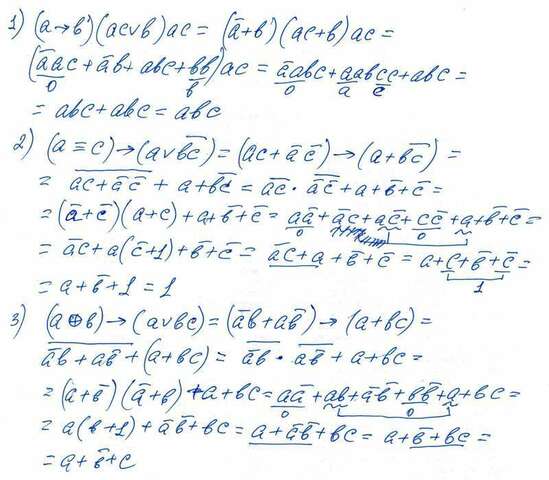 1) (a→b)(ac∨b)ac = (a̅+b)(ac+b)ac =
(a̅ac+a̅b+abc+bb)ac = a̅abc+aabcc+abc =
0 b 0 a c
= abc+abc = abc
2) (a≡c)→(a∨b̅c̅) = (ac+a̅ c̅)→(a+b̅c̅) =
= \overline{ac+a̅ c̅} + a+\overline{bc} = \overline{ac}·\overline{a̅ c̅}+a+b̅+c̅ =
= (a̅+c̅)(a+c)+a+b̅+c̅ = aa̅+a̅c+ac̅+cc̅+a+b̅+c̅ =
0 0
= a̅c+a(c̅+1)+b̅+c̅ = a̅c+a+b̅+c̅ = a+c+b̅+c̅ =
1
= a+b̅+1 = 1
3) (a⊕b)→(a∨bc) = (a̅b+ab̅)→(a+bc) =
\overline{a̅b+ab̅}+(a+bc) = \overline{a̅b}·\overline{ab̅}+a+bc =
= (a+b̅)(a̅+b)+a+bc = aa̅+ab+a̅b̅+bb̅+a+bc =
0 0
= a(b+1)+a̅b̅+bc = a+a̅b̅+bc = a+b̅+bc =
= a+b̅+c